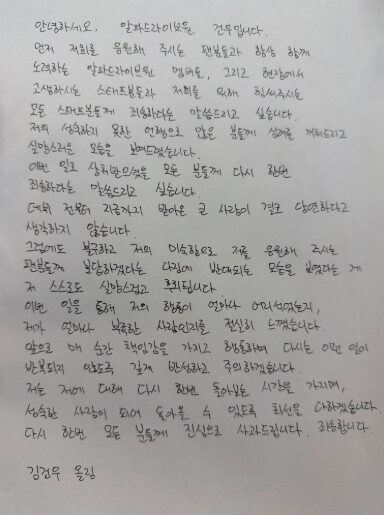 안녕하세요, 알파드라이브원 건우입니다.
먼저 저희를 응원해 주시는 팬분들과 항상 함께
노력하는 알파드라이브원 멤버들, 그리고 현장에서
고생하시는 스태프분들과 저희를 위해 힘써주시는
모든 스태프분들께 죄송하다는 말씀드리고 싶습니다.
저의 성숙하지 못한 언행으로 많은 분들께 심려를 끼쳐드리고
실망스러운 모습을 보여드렸습니다.
이번 일로 상처받으셨을 모든 분들께 다시 한번
죄송하다는 말씀드리고 싶습니다
데뷔 전부터 지금까지 받아온 큰 사랑이 결코 당연하다고
생각하지 않습니다.
그럼에도 불구하고 저의 미숙함으로 저를 응원해 주시는
팬분들께 보답하겠다는 다짐에 반대되는 모습을 보였다는 게
저 스스로도 실망스럽고 후회됩니다.
이번 일을 통해 저의 행동이 얼마나 어리석었는지,
제가 얼마나 부족한 사람인지를 절실히 느꼈습니다.
앞으로 매 순간 책임감을 가지고 행동하며 다시는 이런 일이
반복되지 않도록 깊게 반성하고 주의하겠습니다.
저는 저에 대해 다시 한번 돌아보는 시간을 가지며,
성숙한 사람이 되어 돌아올 수 있도록 최선을 다하겠습니다.
다시 한번 모든 분들께 진심으로 사과드립니다. 죄송합니다.
김건우 올림